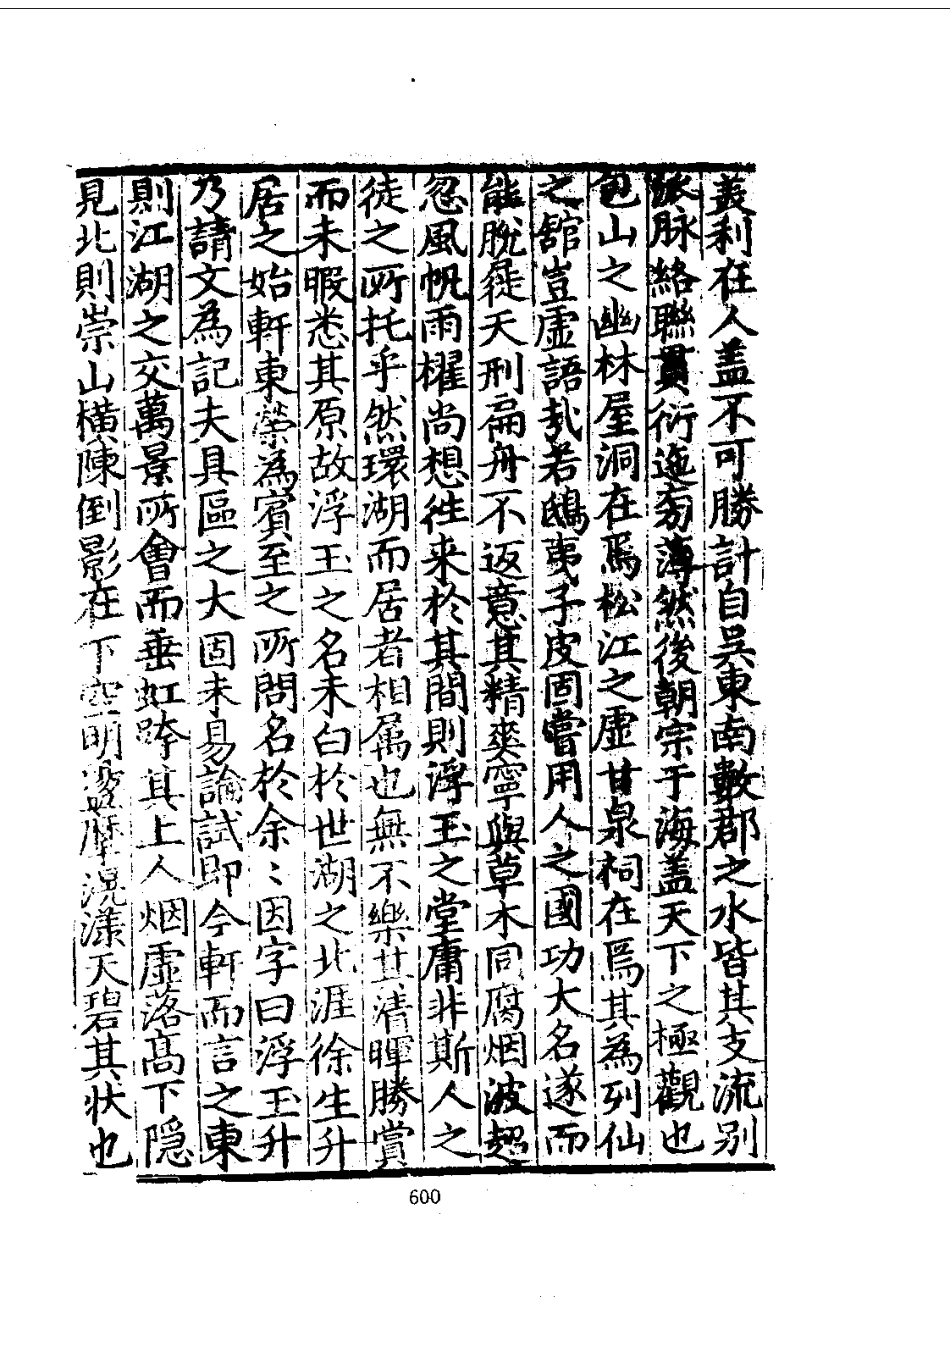 叢利在人盖不可勝計自吳東南數郡之水皆其支流別
派脉絡聯貫衍迤旁薄然後朝宗于海盖天下之極觀也
包山之幽林屋洞在焉松江之虛甘泉祠在焉其為列仙
之舘豈虛語㢤若鴟夷子皮固嘗用人之國功大名遂而
能脫屣天刑扁舟不返意其精爽寧與草木同腐烟波超
忽風帆雨櫂尚想徃来於其間則浮玉之堂庸非斯人之
徒之所托乎然環湖而居者相属也無不樂其清暉勝賞
而未暇悉其原故浮玉之名未白於世湖之北涯徐生升
居之始軒東榮為賓至之所問名於余〻因字曰浮玉升
乃請文為記夫具區之大固未易論試即今軒而言之東
則江湖之交萬景所會而垂虹跨其上人烟虛落髙下隠
見北則崇山橫陳倒影在下空明盪摩滉漾天碧其状也
600